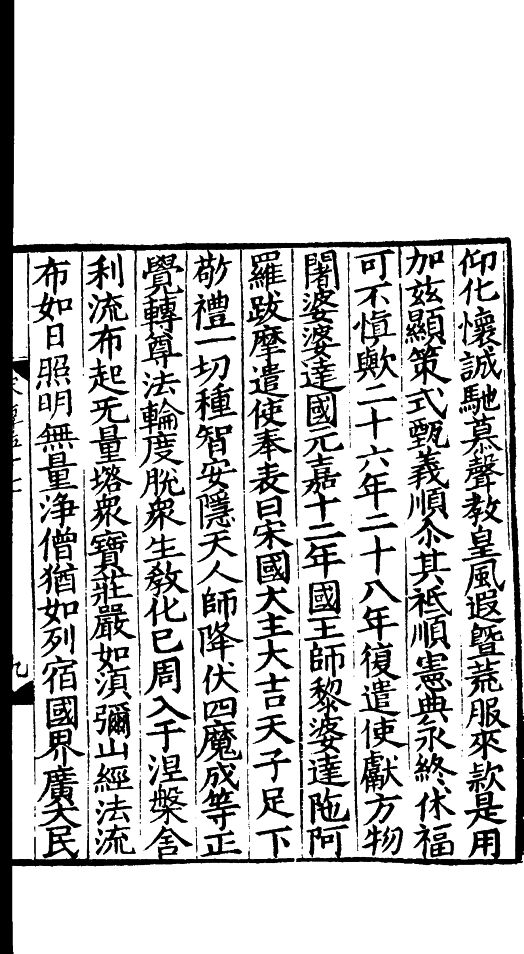 仰化懷誠馳慕聲教皇風遐曁荒服來款是用
加兹顯策式甄義順尒其祗順憲典永終休福
可不慎歟二十六年二十八年復遣使獻方物
闍婆婆達國元嘉十二年國王師黎婆達陁阿
羅跋摩遣使奉表曰宋國大主大吉天子足下
敬禮一切種智安隱天人師降伏四魔成等正
覺轉尊法輪度脫衆生敎化已周入于涅槃舍
利流布起无量塔衆寶莊嚴如湏彌山經法流
布如日照明無量浄僧猶如列宿國界廣大民
九